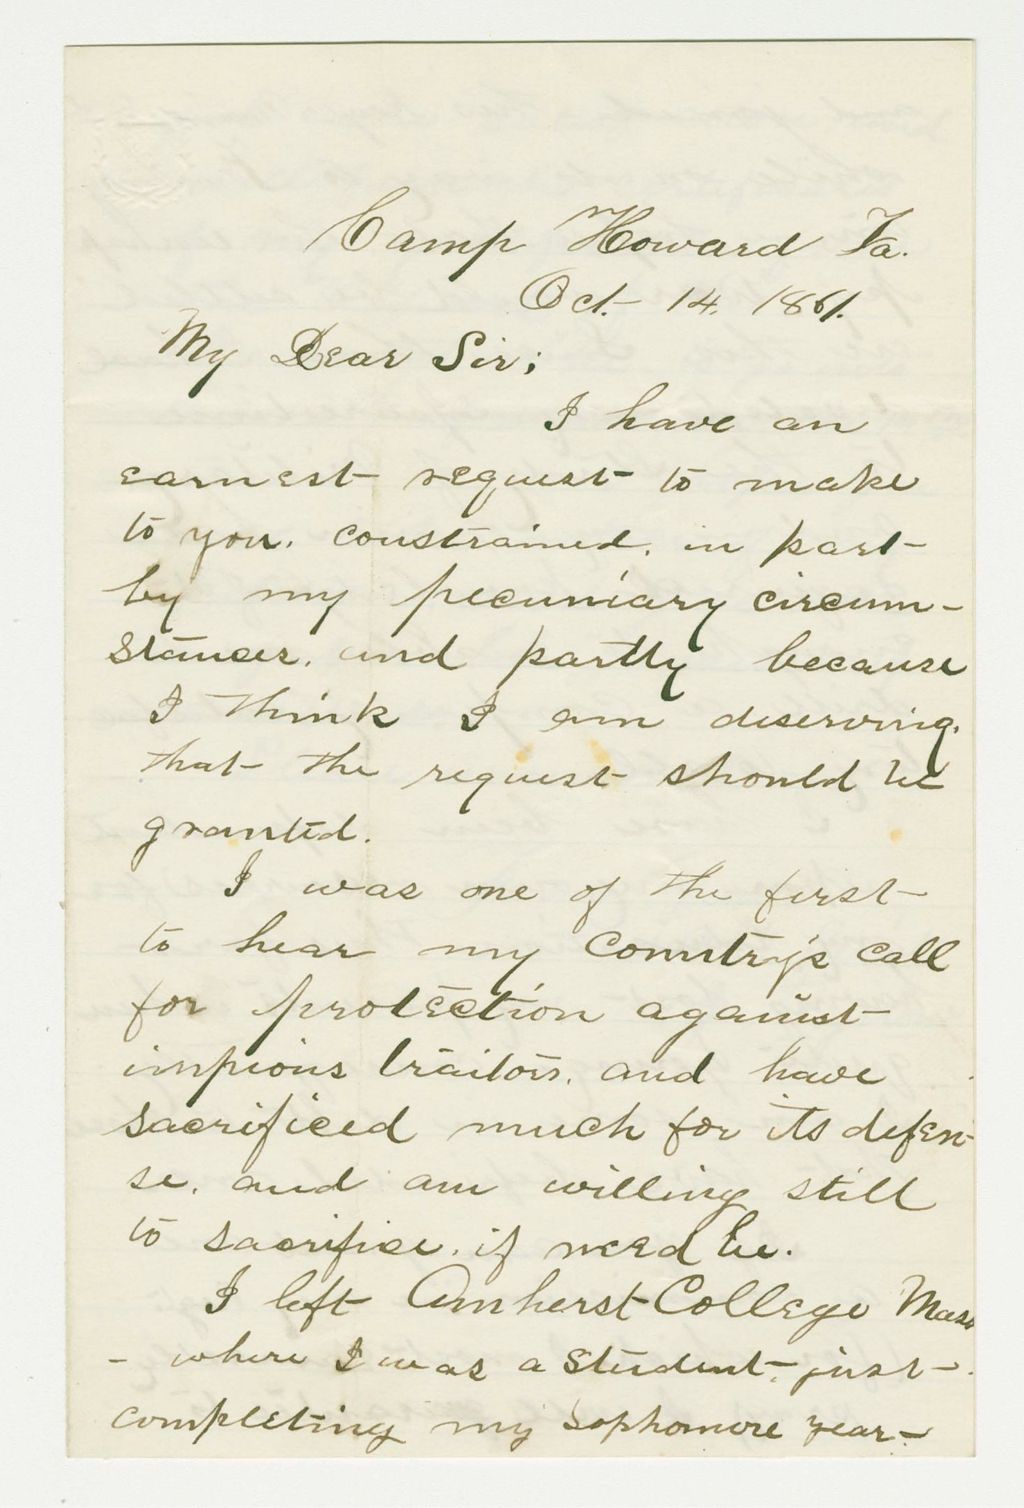 Camp Howard Va.
Oct. 14. 1861.
My Dear Sir;
I have an
earnest request to make
to you. constrained. in part
by my pecuniary circum-
stances. and partly because
I think I am deserving.
that the request should be
granted.
I was one of the first
to hear my Country's call
for protection against
impious traitors. and have
sacrificed much for its defen-
se. and am willing still
to sacrifice. if need be.
I left Amherst College Mass
- where I was a student. just
completing my sophomore year-